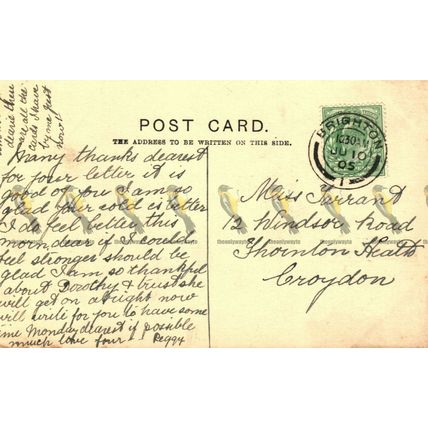 dearie these
are all the
cards I have
by me just
now!!
POST CARD.
THE ADDRESS TO BE WRITTEN ON THIS SIDE.
BRIGHTON
10.30 AM
JU 10
05
1
Many thanks dearest
for your letter it is
good of you I am so
glad your cold is better
I do feel better this
morn, dear if I could
feel stronger should be
glad I am so thankful
about Dorothy & trust she
will get on alright now
will write for you to have some
time Monday dearest if possible
much love your Peggy
Miss Tarrant
12 Windsor Road
Thornton Heath
Croydon
theonlywayto
theonlywayto
theonlywayto
theonlywayto
theonlywayto